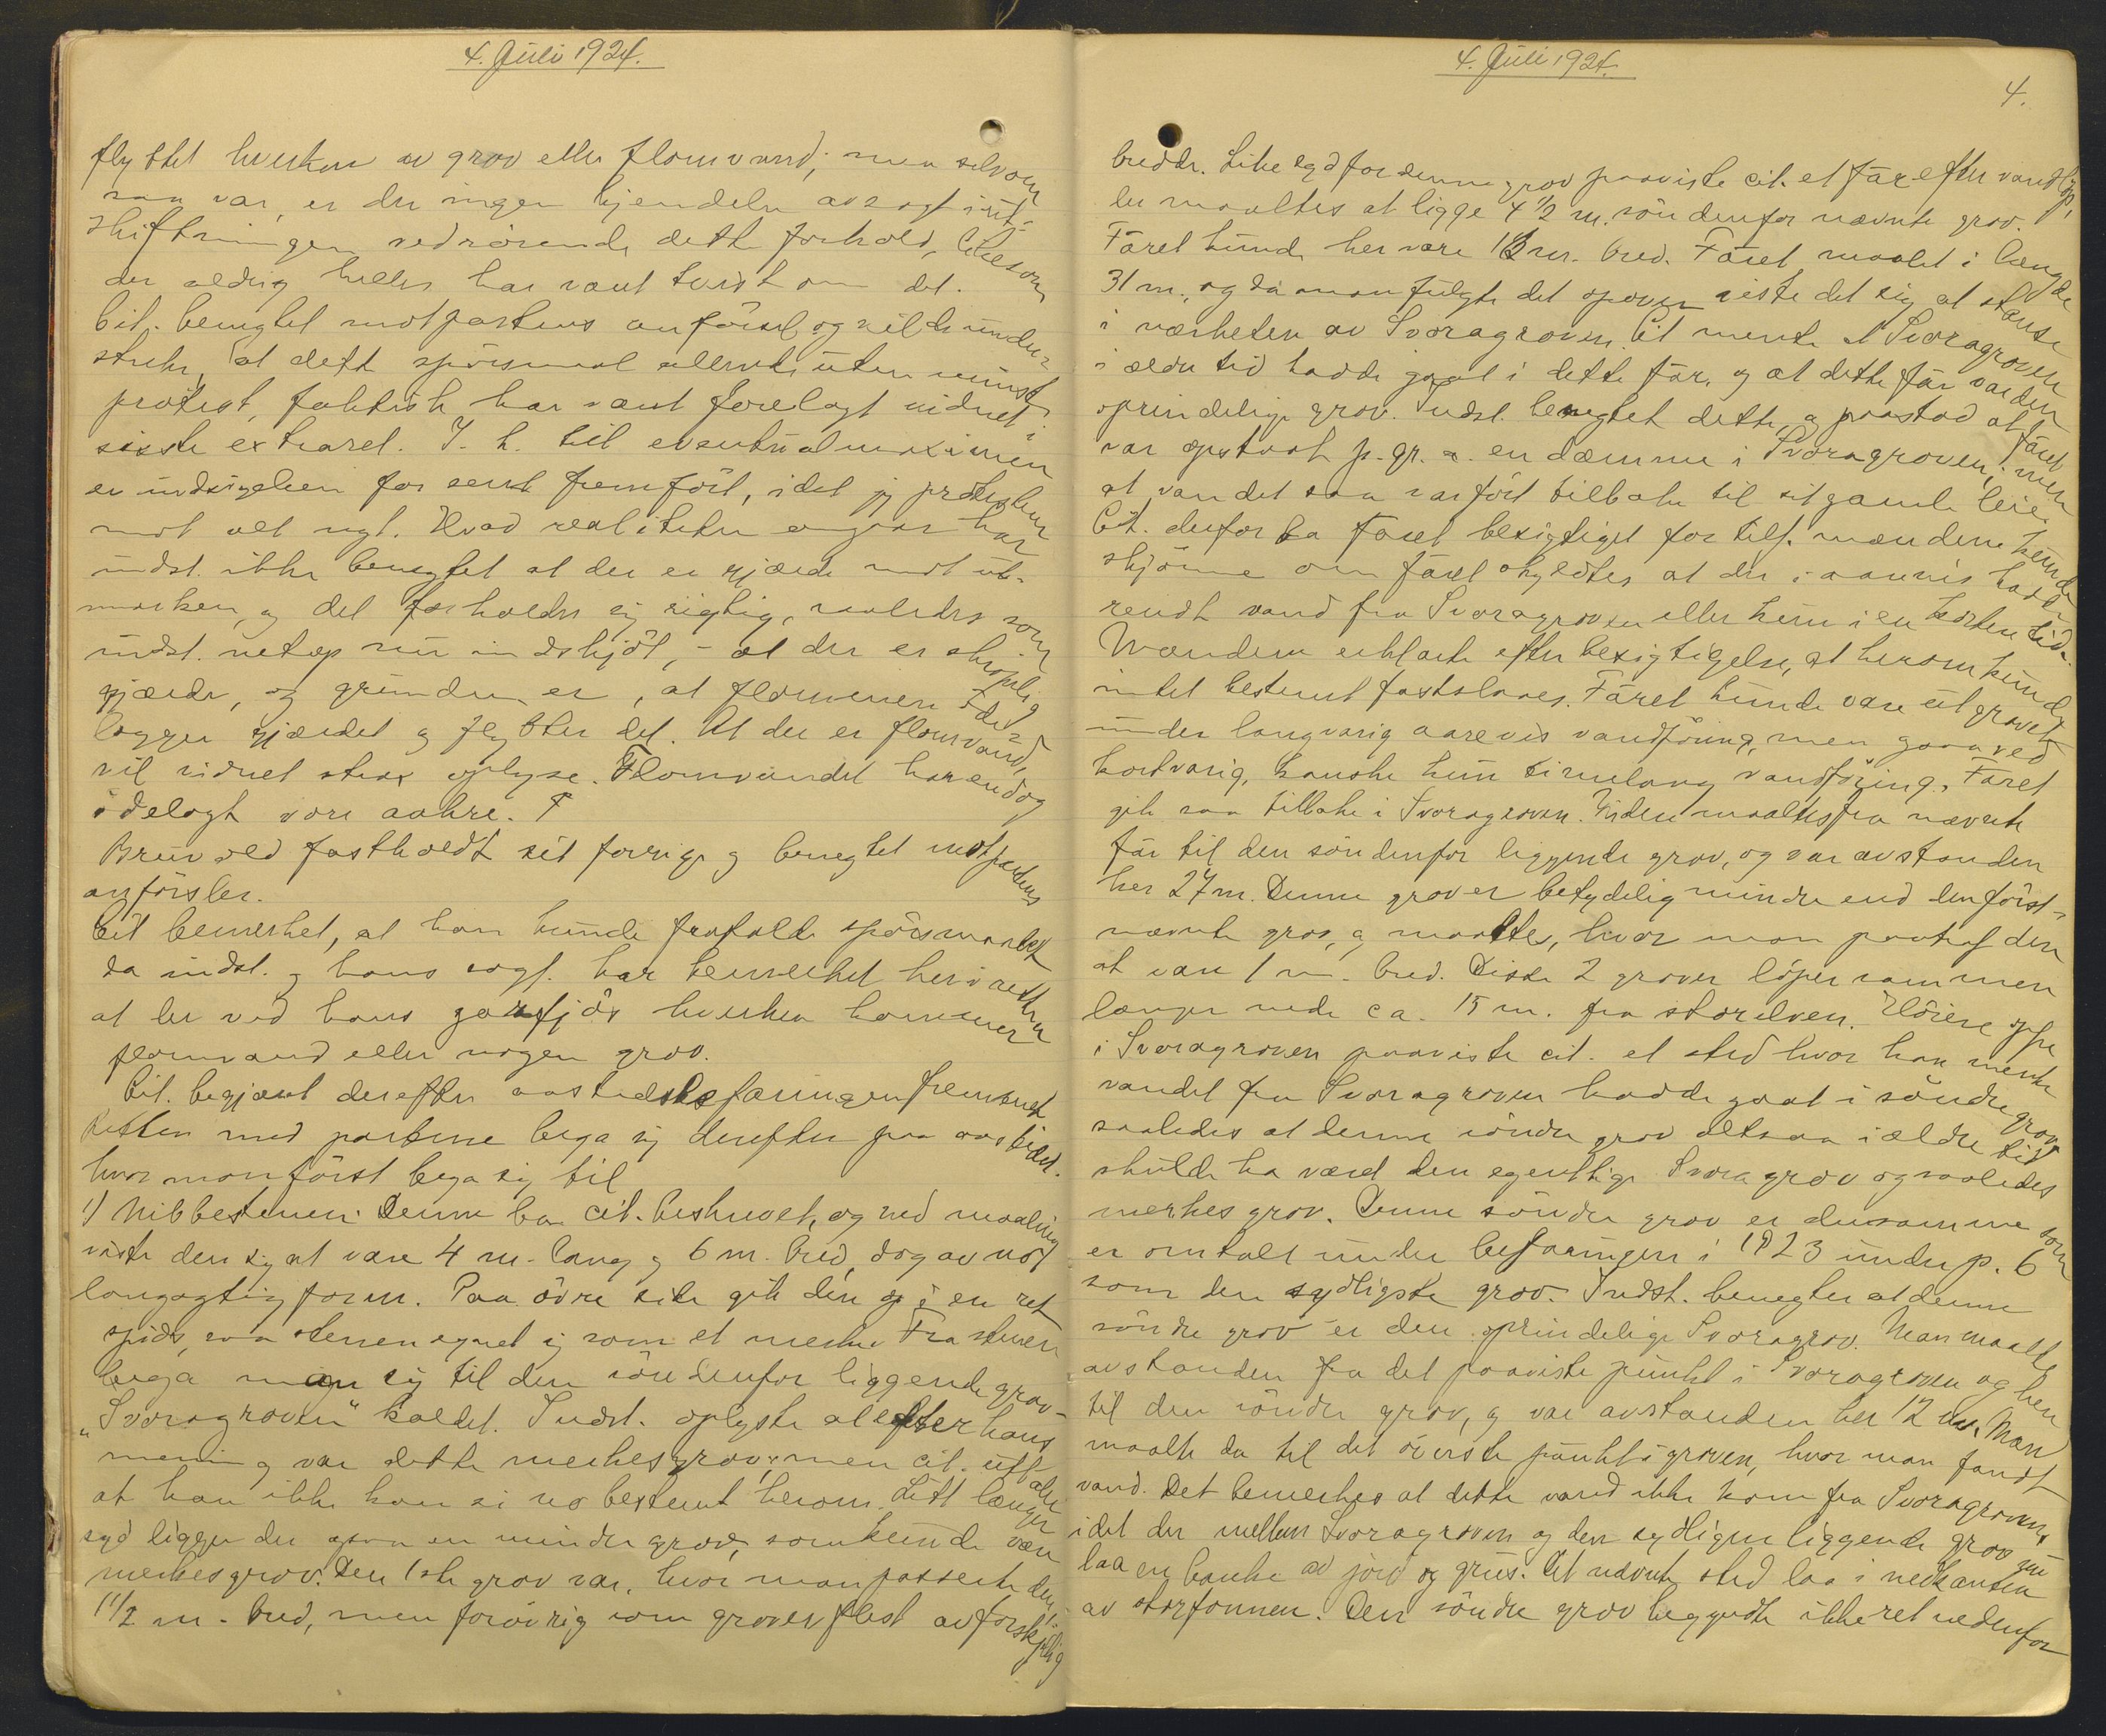 4. Juli 1924.
flyttet hverken av grov eller flomvand; men selvom
saa var, er der ingen kjendelse avsagt i ut-
skiftningen vedrörende dette forhold, likesom
der aldrig heller har vært tvist om det.
Cit. benegtet motpartens anförsel og vilde under-
streke, at dette spörsmaal allerede uten mindste
protest, faktisk har vært forelagt vidnet i
sisste extraret. I. h. til eventualmaximen
er indsigelsen for sent fremfört, idet jeg protesterer
mot alt nyt. Hvad realiteten angaar har
indst. ikke benegtet at der er gjærde mot ut-
marken, og det forholder sig rigtig, saaledes som
indst. netop nu indskjöt, - at der er skrøpelig
gjærde, og grunden er, at flommen öde-
lægger gjærdet og flytter det. At der er flomvand,
vil vidnet strax oplyse. Flomvandet har endog
ödelagt vore aakre.
Brunvold fastholdt sit forrige og benegtet motpartens
anförsler.
Cit bemerket, at han kunde frafalde spörsmaalet
da indst. og hans sagf. har bemerket her i retten
at der ved hans gaardfjös hverken kommer
flomvand eller nogen grov.
Cit. begjært derefter aastedsbefaringen fremmet
Retten med parterne bega sig derefter paa aastedet.
hvor man först bega sig til
1) Nibbestenen: Denne ba cit. beskrevet, og ved maaling
viste den sig at være 4 m. lang og 6 m. bred, dog av noget
langagtig form. Paa övre side gik den op i en ret
spids, saa stenen egnet sig som et merke. Fra stenen
bega man sig til den söndenfor liggende grov -
"Svoragroven" kaldet. Indst. oplyste at efter hans
mening var dette merkesgrov, men cit. uttalte
at han ikke kan si no bestemt herom. Litt længer
syd ligger der ogsaa en mindre grov, som kunde være
merkesgrov. Den 1ste grov var, hvor man passerte den,
1 1/2 m. bred, men forövrig som grover flest av forskjellig
4. Juli 1924.
4.
bredde. Like syd for denne grov paaviste cit. et får efter vandlöp,
der maaltes at ligge 4 1/2 m. söndenfor nævnte grov.
Fåret kunde her være m. bred. Fåret maalt i længde
31 m., og da man fulgte det opover viste det sig at stanse
i nærheten av Svoragroven. Cit mente at Svoragroven
i ældre tid hadde gaat i dette får, og at dette får var den
oprindelige grov. Indst. benegtet dette, og paastod at fåret
var opstaat p. gr. a. en dæmme i Svoragroven; men
at vandet saa var fört tilbake til sit gamle leie.
Cit. derfor ba fåret besigtiget for tilf. mændene kunde
skjönne om fåret skyldtes at der i aarevis hadde
rendt vand fra Svoragroven eller kun i en kortere tid.
Mændene erklærte efter besigtigelse, at herom kunde
intet bestemt fastslaaes. Fåret kunde være utgravet
under langvarig aarevis vandföring, men ogsaa ved
kortvarig, kanske kun timelang vandföring. Fåret
gik saa tilbake i Svoragroven. Videre maaltes fra nævnte
får til den söndenfor liggende grov, og var avstanden
her 27 m. Denne grov er betydelig mindre end den först-
nævnte grov, og maaltes, hvor man paatraf den
at være 1 m. bred. Disse 2 grover löper sammen
længer nede ca. 15 m. fra storelven. Höiere oppe
i Svoragroven paaviste cit. et sted hvor han mente
vandet fra Svoragroven hadde gaat i söndre grov
saaledes at denne söndre grov altsaa i ældre tid
skulde ha været den egentlige Svoragrov og saaledes
merkesgrov. Denne söndre grov er densamme som
er omtalt under befaringen i 1923 under p. 6
som den sydligste grov. Indst. benegter at denne
söndre grov er den oprindelige Svoragrov. Man maalte
avstanden fra det paaviste punkt i Svoragroven og hen
til den söndre grov, og var avstanden her 12 m. Man
maalte da til det överste punkt i groven, hvor man fandt
vand. Det bemerkes at dette vand ikke kom fra Svoragroven,
idet der mellem Svoragroven og den sydligere liggende grov nu
laa en banke av jord og grus. Det nævnte sted laa i nedkanten
av storfonnen. Den söndre grov begyndte ikke ret nedenfor